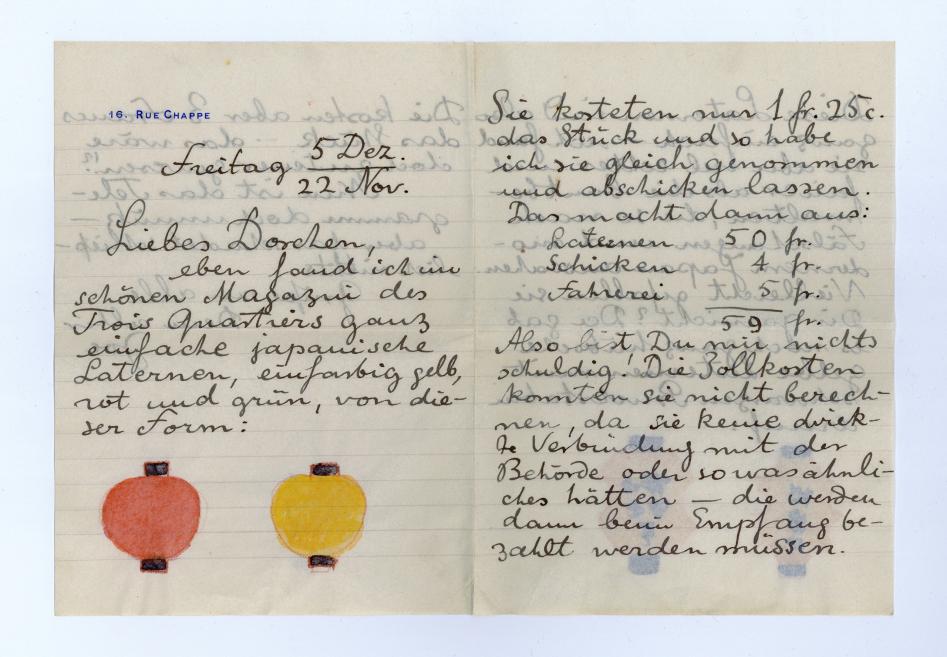 16. RUE CHAPPE
Freitag 5 Dez.
22 Nov.
Liebes Dorchen,
eben fand ich im
schönen Magazin des
Trois Quartiers ganz
einfache japanische
Laternen, einfarbig gelb,
rot und grün, von die-
ser Form:
Sie kosteten nur 1 fr. 25 c.
das Stück und so habe
ich sie gleich genommen
und abschicken lassen.
Das macht dann aus:
Laternen 50 fr.
Schicken 4 fr.
Fahrerei 5 fr.
59 fr.
Also bist Du mir nichts
schuldig! Die Zollkosten
konnten sie nicht berech-
nen, da sie keine direk-
te Verbindung mit der
Behörde oder sowas ähnli-
ches hätten — die werden
dann beim Empfang be-
zahlt werden müssen.